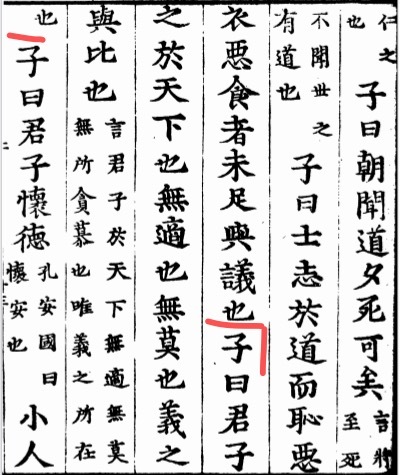 仁之
也
子曰朝聞道夕死可矣
言將
至死
不聞世之
有道也
子曰士志於道而恥惡
衣惡食者未足與議也子曰君子
之於天下也無適也無莫也義之
與比也
言君子於天下無適無莫
無所貪慕也唯義之所在
也
子曰君子懷德
孔安國曰
懷安也
小人